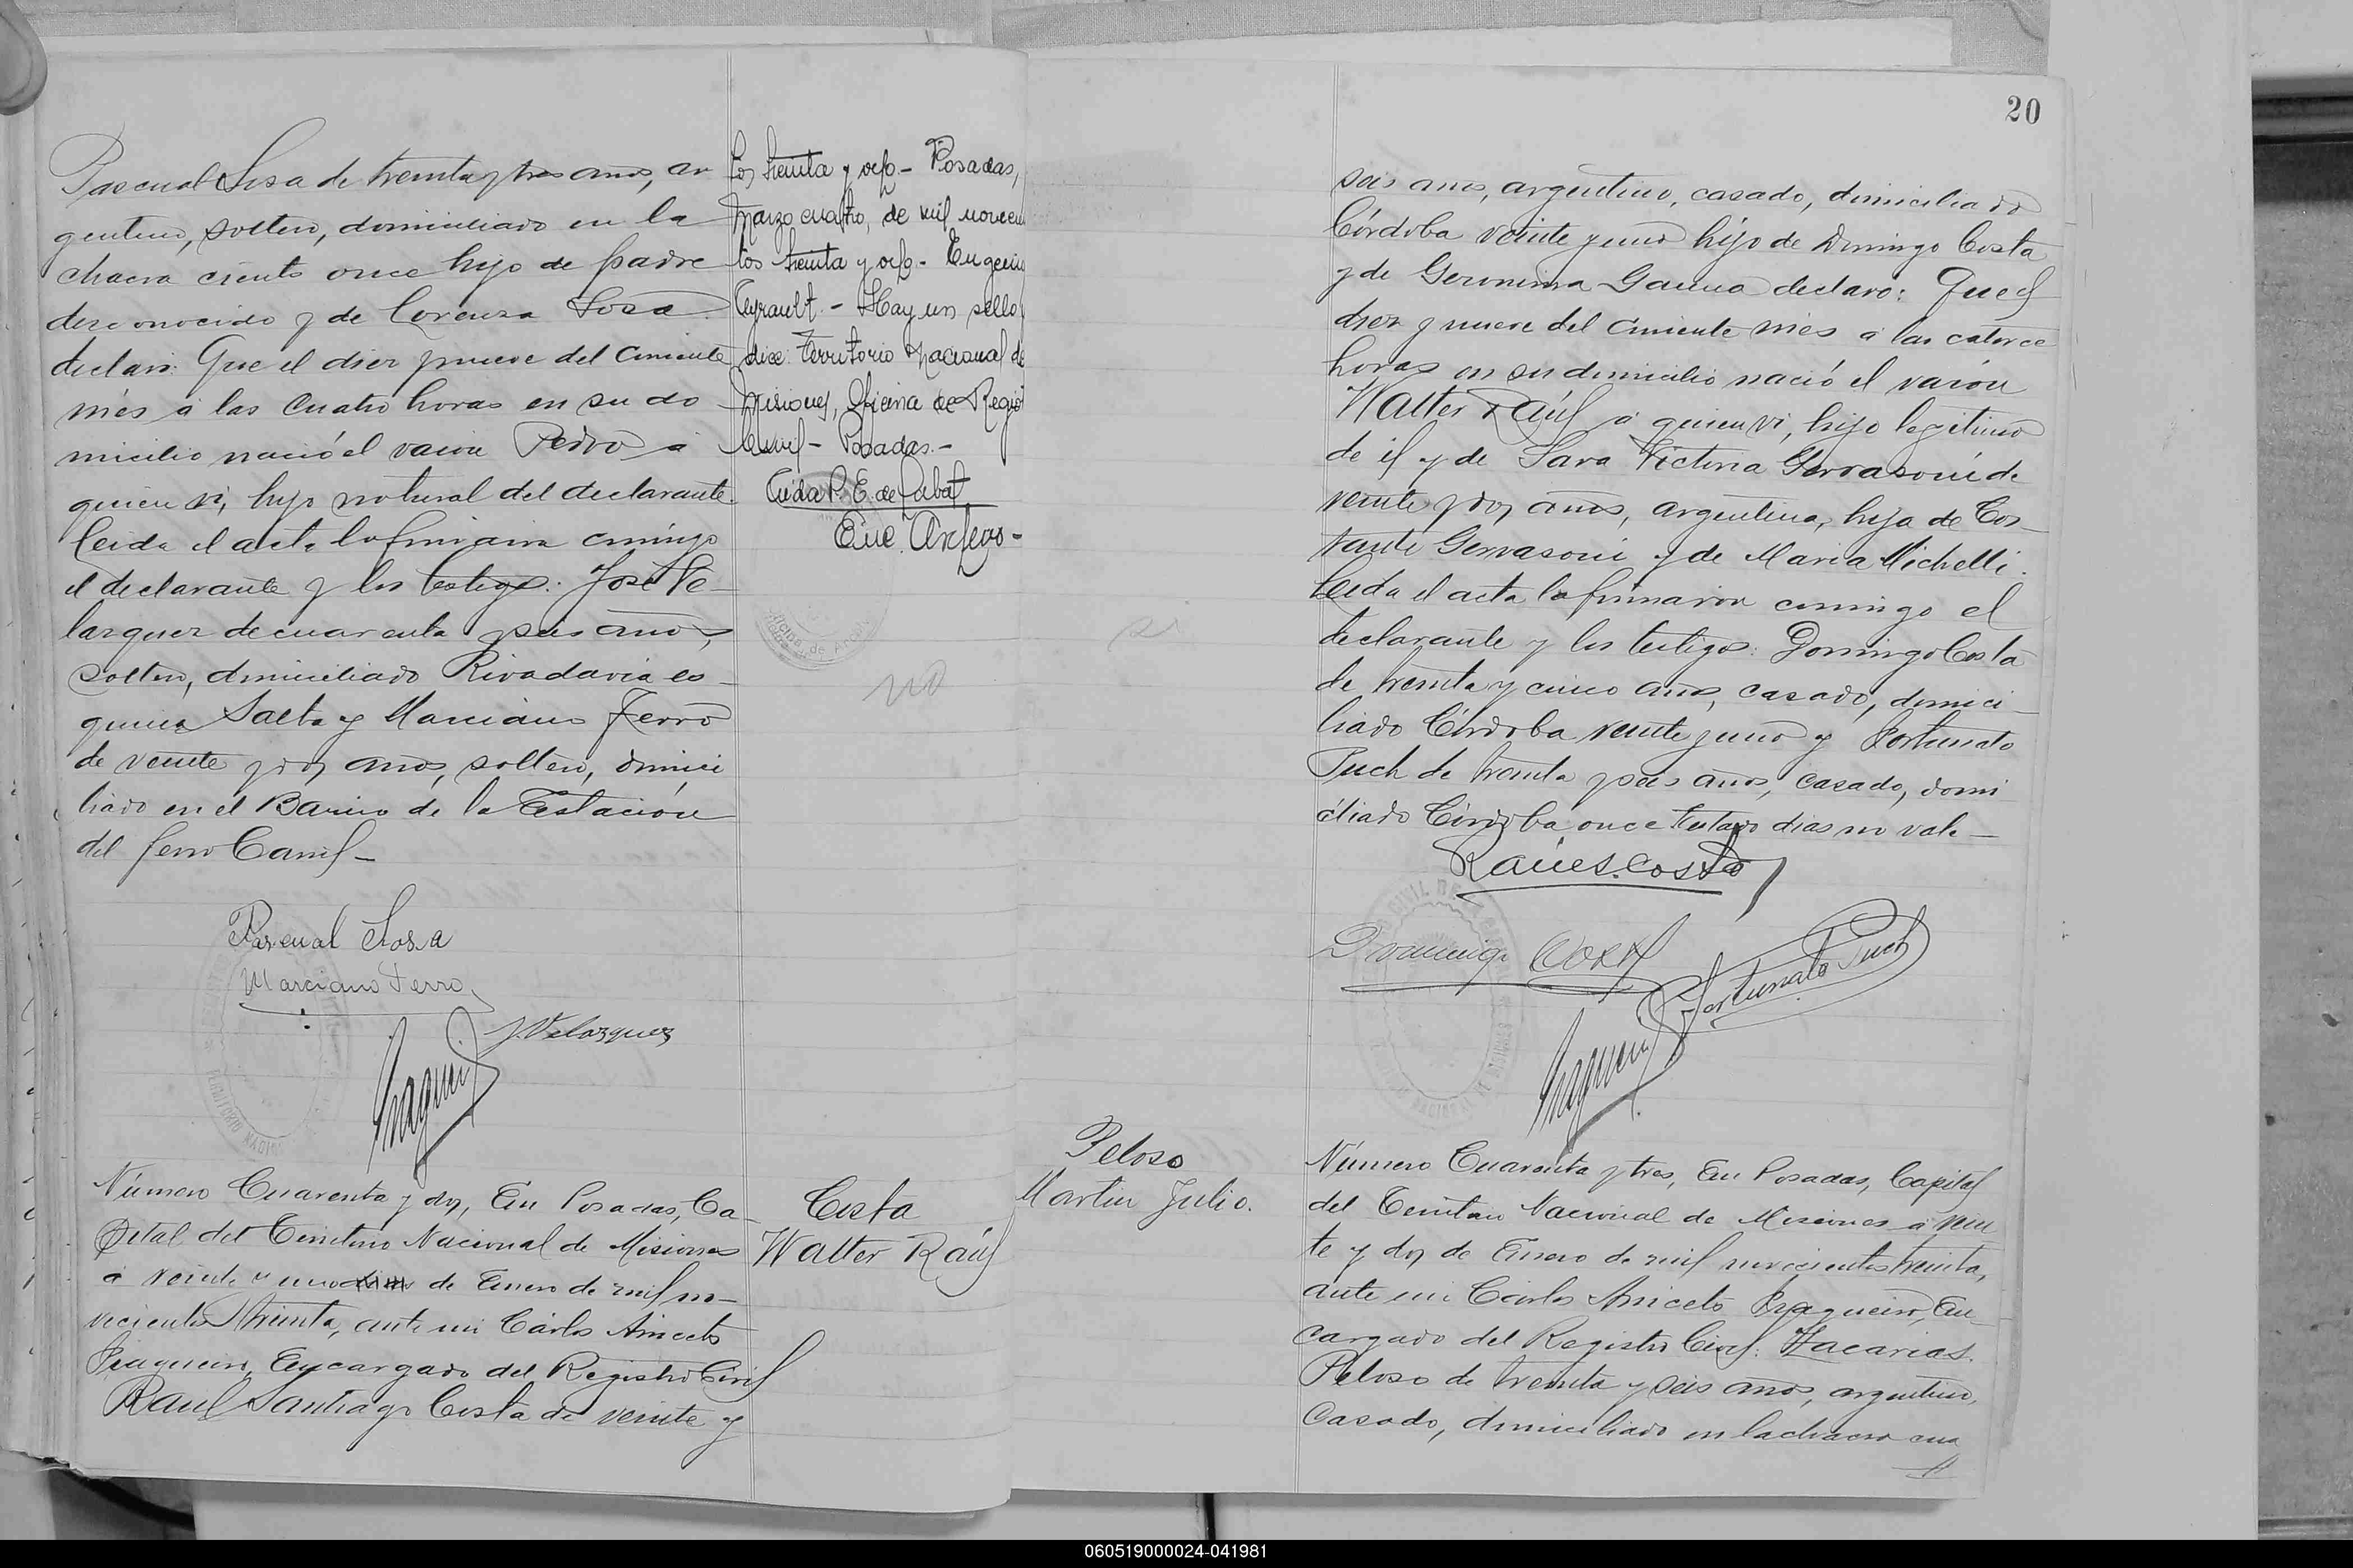 Pascual Sosa de treinta y tres años, ar
gentino, soltero, domiciliado en la
chacra ciento once hijo de padre
desconocido y de Lorenza Sosa
declaró: Que el diez y nueve del corriente
mes á las cuatro horas en su do
micilio nació el varón Pedro á
quien ví, hijo natural del declarante.
Leida el acta la firmaron conmigo
el declarante y los testigos: José Ve-
lazquez de cuarenta y seis años,
soltero, domiciliado Rivadavia es-
quina Salta y Marciano Ferro
de veinte y dos años, soltero, domici
liado en el Barrio de la Estación
del ferro Carril-
Pascual Sosa
Marciano Ferro
J. Velazquez
tos treinta y ocho- Posadas,
Marzo cuatro, de mil novecien
tos treinta y ocho- Eugenio
- Hay un sello
dice: Territorio Nacional de
Misiones, Oficina de Registro
Civil- Posadas.-
Número Cuarenta y dos, En Posadas, Ca-
pital del Territorio Nacional de Misiones
á veinte y uno dias de Enero de mil no-
vecientos treinta, ante mi Cárlos Aniceto
Fragueiro, Encargado del Registro Civil
Raul Santiago Costa de veinte y
Costa
Walter Raúl
20
seis años, argentino, casado, domiciliado
Córdoba veinte y uno hijo de Domingo Costa
y de Geronima Gauna declaró: Que el
diez y nueve del corriente mes á las catorce
horas en su domicilio nació el varón
Walter Raúl á quien ví, hijo legitimo
de él y de Sara Victoria Gervasoni de
veinte y dos años, argentina, hija de Cos-
tante Gervasoni y de Maria Michelli.
Leida el acta la firmaron conmigo el
declarante y los testigos: Domingo Costa
de treinta y cinco años, casado, domici-
liado Córdoba veinte y uno y Fortunato
Puch de treinta y seis años, casado, domi
ciliado Córdoba once Testado dias no vale-
Raúl S. Costa
Domingo Costa
Fortunato Puch
Peloso
Martin Julio.
Número Cuarenta y tres, En Posadas, Capital
del Territorio Nacional de Misiones á vein
te y dos de Enero de mil novecientos treinta,
ante mi Cárlos Aniceto Fragueiro, En-
cargado del Registro Civil: Zacarias
Peloso de treinta y seis años, argentino,
Casado, domiciliado en la chacra cua
060519000024-041981